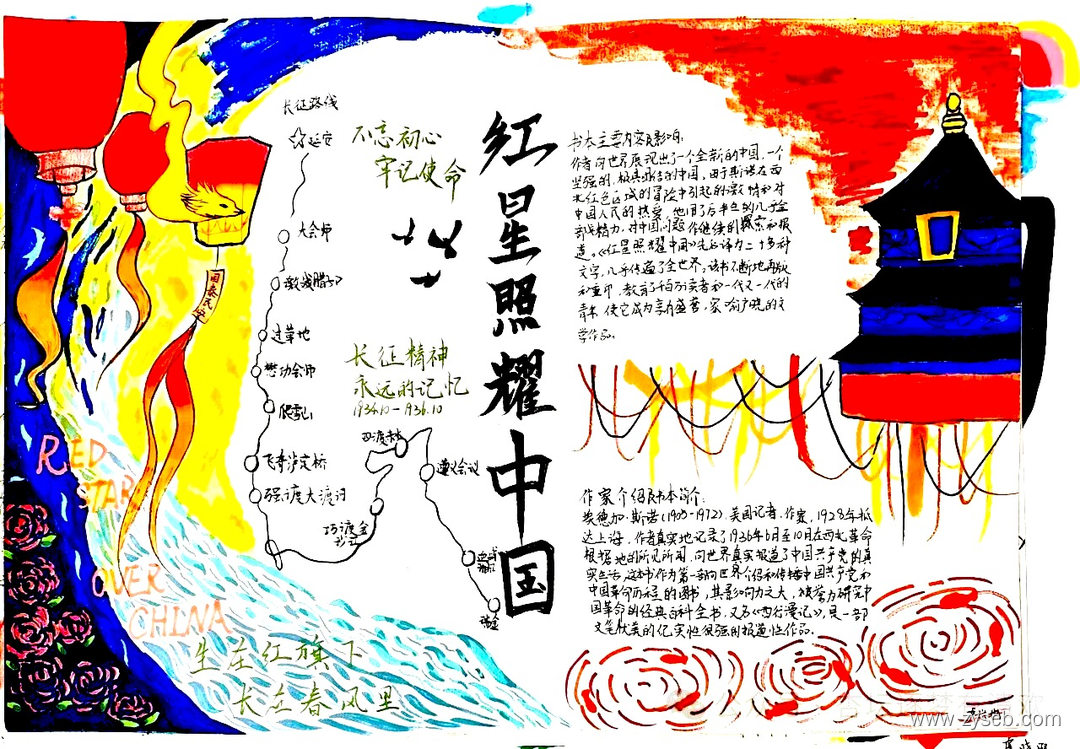 红星照耀中国
长征路线
延安
大会师
激战腊子口
过草地
懋功会师
爬雪山
飞夺泸定桥
强渡大渡河
巧渡金
沙江
四渡赤水
遵义会议
瑞金
不忘初心
牢记使命
长征精神
永远的记忆
1934.10-1936.10
国泰民安
RED
STAR
OVER
CHINA
生在红旗下
长在春风里
书本主要内容及影响:
作者向世界展现出了一个全新的中国,一个
坚强的,极具团结的中国,由于斯诺在西
北红色区域的冒险中引起的激情和对
中国人民的热爱,他用了后半生的几乎全
部精力,对中国问题作继续的探索和报
道。《红星照耀中国》先后译为二十多种
文字,几乎传遍了全世界,该书不断地再版
和重印,教育了千百万读者和一代又一代的
青年,使它成为享有盛誉,家喻户晓的文
学作品。
作家介绍及书本简介:
埃德加·斯诺(1905-1972),美国记者、作家,1928年抵
达上海,作者真实地记录了1936年6月至10月在西北革命
根据地的所见所闻,向世界真实报道了中国共产党的真
实生活,这本书作为第一部向世界介绍和传播中国共产党和
中国革命历程的图书,其影响力之大,被誉为研究中
国革命的经典百科全书,又名《西行漫记》,是一部
文笔优美的纪实性很强的报道性作品。
www.zyseb.com